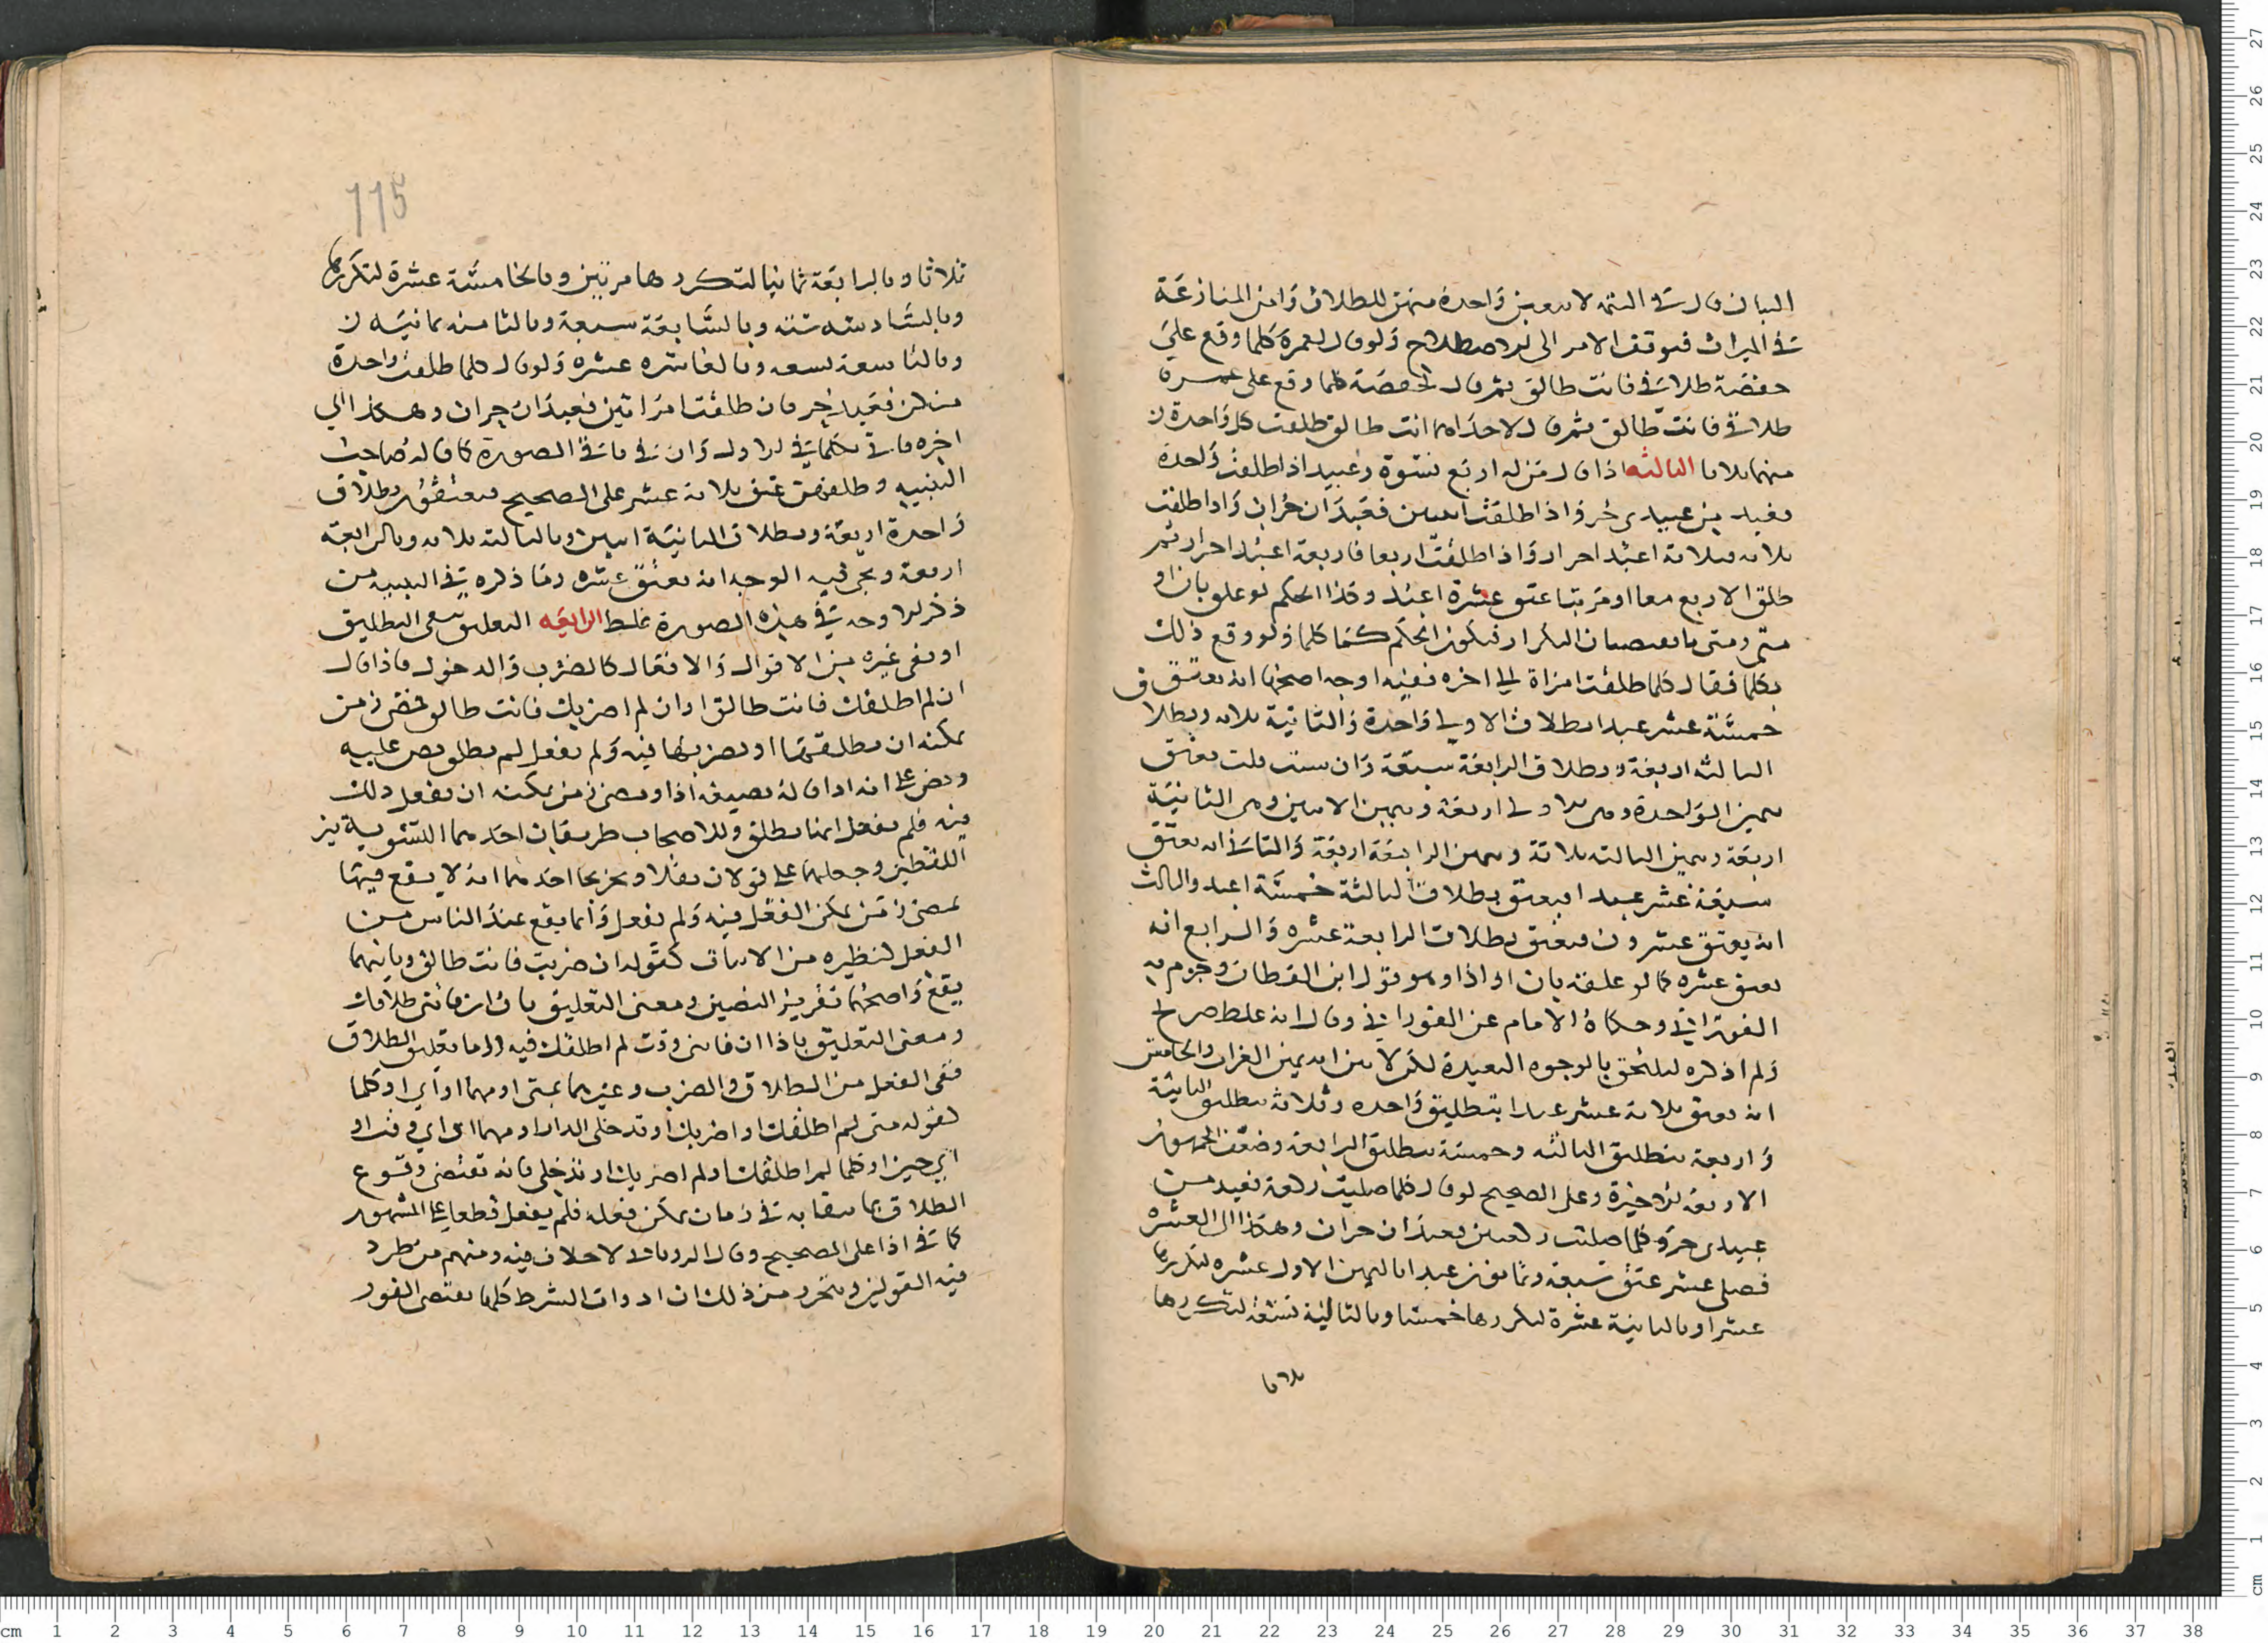 البيان قال في التتمة لا تتعين واحدة منهن للطلاق وامر المنازعة
في الميراث فيوقف الامر الى الاصطلاح ولو قال لعمرة كلما وقع علي
حفصة طلاقي فانت طالق ثم قال لحفصة كلما وقع على عمرة
طلاقي فانت طالق ثم قال لاحداهما انت طالق طلقت كل واحدة
منهما ثلاثا الثالثه اذا قال من له اربع نسوة وعبيد اذا طلقت واحدة
فعبد من عبيدي حر واذا طلقت اثنتين فعبدان حران واذا طلقت
ثلاثه فثلاثة اعبد احرار واذا طلقت اربعا فاربعة اعبد احرار ثم
طلق الاربع معا او مرتبا عتق عشرة اعبد وكذا الحكم لو علق بان او
متى ومتى ما يقتضيان التكرار فيكون الحكم كما كلما ولو وقع ذلك
بكلما فقال كلما طلقت امراة الى اخره ففيه اوجه اصحها انه يعتق
خمسة عشر عبدا بطلاق الاولى واحدة والثانية ثلاثه وبطلا
الثالثه اربعة وبطلاق الرابعة سبعة وان شئت قلت يعتق
بيمين الواحدة وهي الاولى اربعة وبيمين الاثنين وهي الثانية
اربعة وبيمين الثالثه ثلاثة وبيمين الرابعة اربعة والثاني انه يعتق
سبعة عشر عبدا فيعتق بطلاق الثالثة خمسة اعبد والثالث
انه يعتق عشرون فيعتق بطلاق الرابعة عشره والرابع انه
يعتق عشره كما لو علقه بان او اذا وهو قول ابن القطان وجزم به
الفوراني وحكاه الامام عن الفوراني وقال انه غلط صريح
ولم اذكره ليلتحق بالوجوه البعيدة لكن لابين انه من الغرائب والخامس
انه يعتق ثلاثة عشر عبدا بتطليق واحده وثلاثة بتطليق الثانية
واربعة بتطليق الثالثه وخمسة بتطليق الرابعة وضعف الجمهور
الاربعة الاخيرة وعلى الصحيح لو قال كلما صليت ركعة فعبد من
عبيدي حر وكلما صليت ركعتين فعبدان حران وهكذا الى العشره
فصلى عشر عتق سبعة وثمانون عبدا باليمين الاول عشره لتكررها
عشرا وبالثانية عشرة لتكررها خمسا وبالثالثة تسعة لتكررها
ثلاثا
115
ثلاثا وبالرابعة ثمانيا لتكررها مرتين وبالخامسة عشرة لتكررها
وبالسادسه سته وبالسابعة سبعة وبالثامنه ثمانيه
وبالتاسعة تسعه وبالعاشره عشره ولو قال كلما طلقت واحدة
منكن فعبد حر فان طلقت امراتين فعبدان حران وهكذا الى
اخره فاتى بكلما في الاول وان في باقي الصورة كما قاله صاحب
التنبيه وطلقهن عتق ثلاثة عشر على الصحيح فيعتق بطلاق
واحدة اربعة وبطلاق الثانية اثنين وبالثالثه ثلاثه وبالرابعة
اربعة ويجي فيه الوجه انه يعتق عشره وما ذكره في التنبيه من
ذكر الاوجه في هذه الصورة غلط الرابعه التعليق بنفي التطليق
او نفي غيره من الاقوال والافعال كالضرب والدخول فاذا قال
ان لم اطلقك فانت طالق او ان لم اضربك فانت طالق فمضى زمن
يمكنه ان يطلقها او يضربها فيه ولم يفعل لم يطلق نص عليه
ونص على انه اذا قاله بصيغة اذا ومضى زمن يمكنه ان يفعل ذلك
فيه فلم يفعل انها تطلق وللاصحاب طريقان احدهما التسوية بين
اللفظين وجعلهما على قولان نقلا وتخريجا احدهما انه لا يقع فيهما
بمضي زمن يمكن الفعل فيه ولم يفعل وانما يقع عند الياس من
الفعل لنظيره من الاثبات كقوله ان ضربت فانت طالق وثانيهما
يقع واصحهما تقرير النصين ومعنى التعليق بان ان فاتني طلاقك
ومعنى التعليق باذا ان فاتني وقت لم اطلقك فيه واما تعليق الطلاق
بنفي الفعل من الطلاق والضرب وغيرهما بمتى او مهما او اي او كلما
كقوله متى لم اطلقك او اضربك او تدخلي الدار او مهما او اي وقت او
اي حين او كلما لم اطلقك او لم اضربك او تدخلي فانه يقتضي وقوع
الطلاق بها في زمان يمكن فعله فلم يفعل قطعا على المشهور
كما في اذا على الصحيح وقال الروياني لا خلاف فيه ومنهم من طرد
فيه القولين وتحرر من ذلك ان ادوات الشرط كلها يقتضي الفور